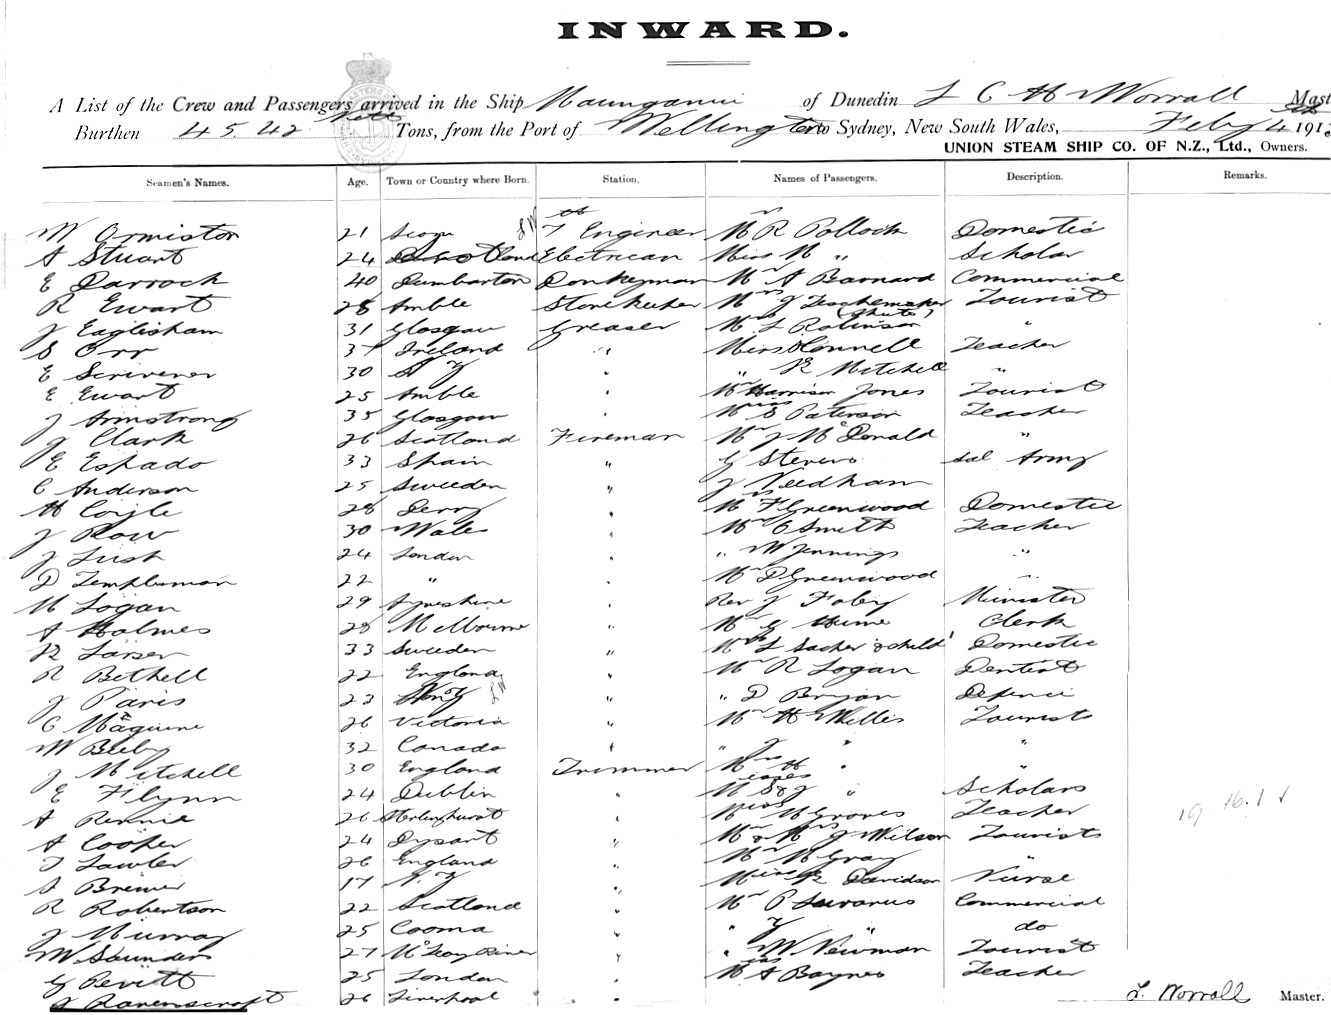 INWARD.
A List of the Crew and Passengers arrived in the Ship Maunganui of Dunedin L C H Worrall Mast
Burthen 4542 Nett Tons, from the Port of Wellington to Sydney, New South Wales, Feby 4th 191
UNION STEAM SHIP CO. OF N.Z., Ltd., Owners.
Seamen's Names. Age. Town or Country where Born. Station. Names of Passengers. Description. Remarks.
W Ormiston 21 7th Engineer Mr R Pollock Domestic
A Stuart 24 Scotland Electrican Miss M " Scholar
E Darroch 40 Dumbarton Donkeyman Mr A Barnard Commercial
R Ewart 28 Amble Storekeeper Mrs J Teschemaker Tourist
J Eaglisham 31 Glasgow Greaser Mr L Robinson "
S Orr 37 Ireland " Miss Connell Teacher
E Scrivener 30 N Z " " R Mitchell "
E Ewart 25 Amble " Mr Harrison Jones Tourist
J Armstrong 35 Glasgow " Miss E Paterson Teacher
J Clark 26 Scotland Fireman Mr J McDonald "
E Espado 33 Spain " G Stevens Sal Army
C Anderson 25 Sweeden " J Needham
H Coyle 28 Derry " Mrs F Greenwood Domestic
J Row 30 Wales " Mr C Smith Teacher
J Lush 24 London " " W Jennings "
D Templeman 22 " " Mr D Greenwood "
M Logan 29 Ayreshire " Rev J Foley Minister
A Holmes 28 Melbourne " Mr G Hume Clerk
R Larsen 33 Sweeden " Mrs L Sacher & child Domestic
R Bethell 22 England " Mr R Logan Dentist
J Paris 23 " " D Bryan Defence
C Maguire 26 Victoria " Mr H Willis Tourists
W Beeby 32 Canada " " J " "
J Mitchell 30 England Trimmer Mrs H " "
E Flynn 24 Dublin " Misses E & J " Scholars
A Rennie 26 " Miss M Groves Teacher
A Cooper 24 Dysart " Mr & Mrs J Wilson Tourists
T Lawler 26 England " Mr M Gray "
A Brewer 17 N.Z " Miss R Davidson Nurse
R Robertson 22 Scotland " Mr P Commercial
J Murray 25 Cooma " " J " do
W Saunders 27 McLeay River " " W Newman Tourist
G Pevitt 25 London " Miss A Baynes Teacher
J Ravenscroft 26 Liverpool "
L. Worrall Master.